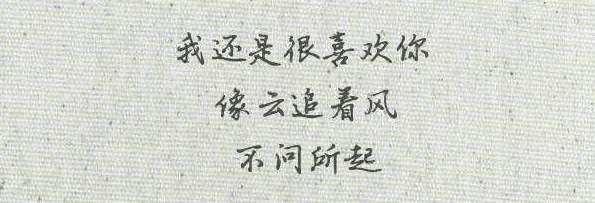 我还是很喜欢你
像云追着风
不问所起